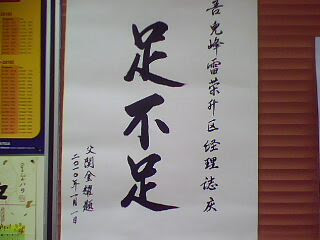 吾兒峰雷荣升区经理誌庆
足不足
父関金耀题
二〇一〇年一月一日